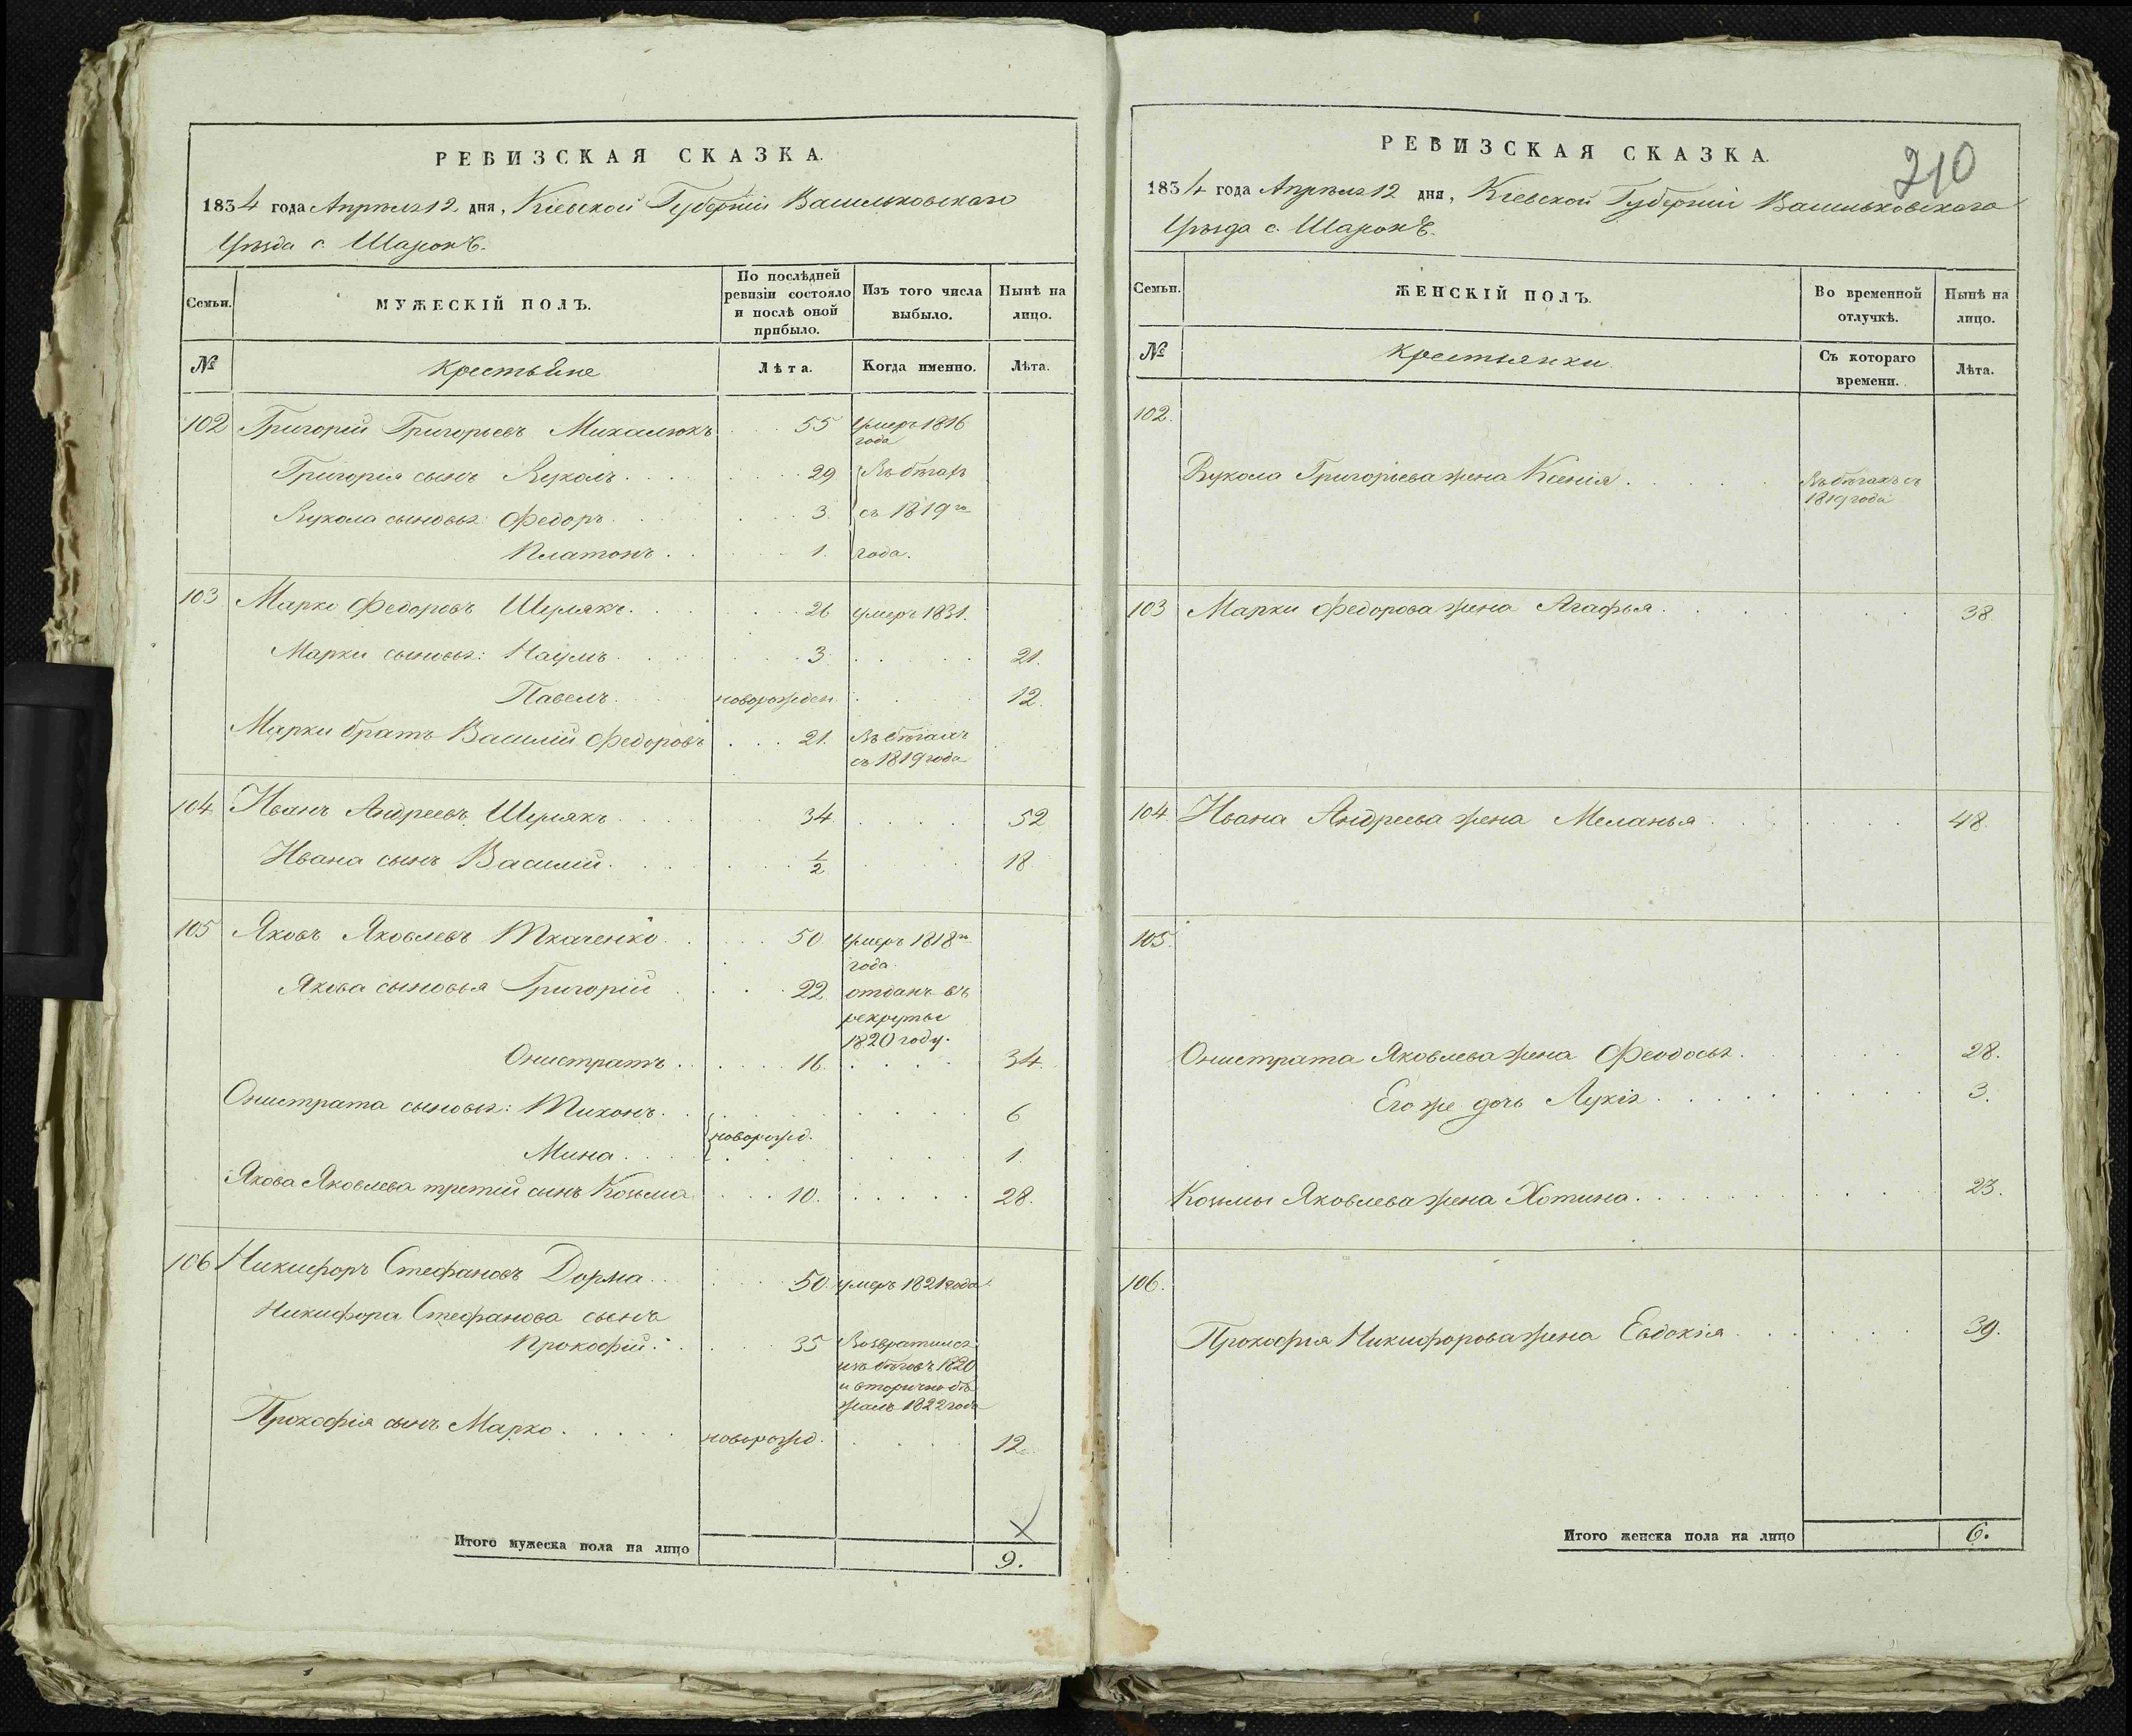 РЕВИЗСКАЯ СКАЗКА.
1834 года Апрѣля 12 дня, Кіевской Губерніи Васильковскаго
Уѣзда с. Шарокъ.
Семьи.
МУЖЕСКІЙ ПОЛЪ.
По послѣдней
ревизіи состояло
и послѣ оной
прибыло.
Изъ того числа
выбыло.
Нынѣ на
лицо.
№
Крестьяне
Лѣта.
Когда именно.
Лѣта.
102 Григорій Григорьевъ Михалюкъ 55 умеръ 1816
года
Григорія сынъ Вуколъ 29 Въ бѣгахъ
Вукола сыновья: Федоръ 3 съ 1819го
Платонъ 1. года.
103 Марко Федоровъ Шулякъ 26 умеръ 1831.
Марки сыновья: Наумъ 3 21.
Павелъ новорожден 12.
Марки братъ Василій Федоровъ 21. Въ бѣгахъ
съ 1819 года
104 Иванъ Андреевъ Шулякъ 34 52
Ивана сынъ Василій 1/2 18
105 Яковъ Яковлевъ Ткаченко 50 умеръ 1818го
года.
Якова сыновья Григорій 22. отданъ въ
рекруты
1820 году.
Онистратъ 16. 34.
Онистрата сыновья: Тихонъ 6
новорожд.
Мина 1.
Якова Яковлева третій сынъ Козьма 10. 28.
106 Никифоръ Стефановъ Дорма 50. умеръ 1821 года
Никифора Стефанова сынъ
Прокофій 35 Возвратился
изъ бѣговъ 1820
и вторично бѣ
жалъ 1822 года
Прокофія сынъ Марко новорожд. 12
Итого мужеска пола на лицо 9.
210
РЕВИЗСКАЯ СКАЗКА.
1834 года Апрѣля 12 дня, Кіевской Губерніи Васильковскаго
Уѣзда с. Шарокъ.
Семьи.
ЖЕНСКІЙ ПОЛЪ.
Во временной
отлучкѣ.
Нынѣ на
лицо.
№
Крестьянки.
Съ котораго
времени.
Лѣта.
102.
Вукола Григорьева жена Ксенія Въ бѣгахъ съ
1819 года
103 Марки Федорова жена Агафья 38
104. Ивана Андреева жена Меланья 48.
105.
Онистрата Яковлева жена Феодосья 28.
Его же дочь Лукія 3.
Козьмы Яковлева жена Хотина 23.
106.
Прокофія Никифорова жена Евдокія 39.
Итого женска пола на лицо 6.